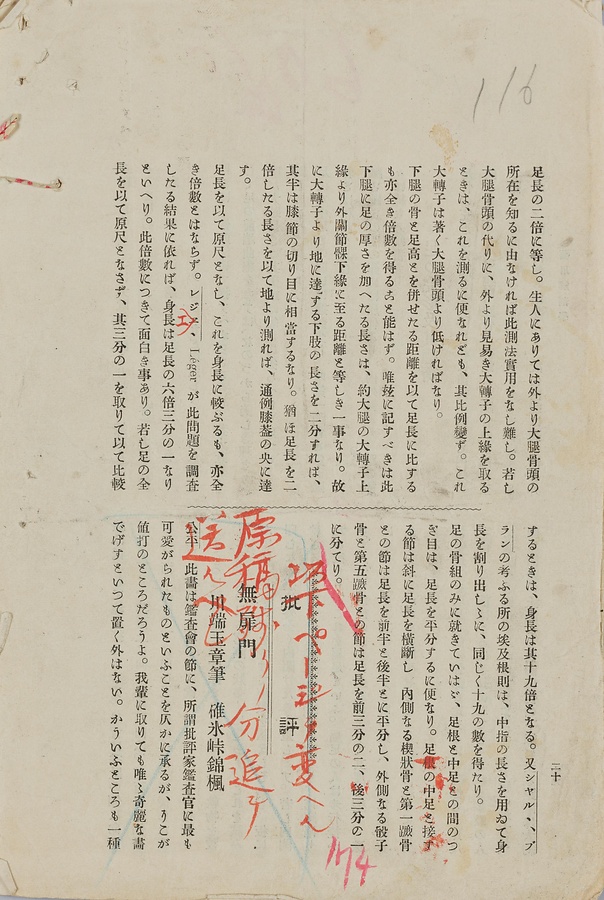 116
二十
足長の二倍に等し。生人にありては外より大腿骨頭の
所在を知るに由なければ此測法實用をなし難し。若し
大腿骨頭の代りに、外より見易き大轉子の上緣を取る
ときは、これを測るに便なれども、其比例變ず。これ
大轉子は著く大腿骨頭より低ければなり。
下腿の骨と足高とを併せたる距離を以て足長に比する
も亦全き倍數を得ること能はず。唯玆に記すべきは此
下腿に足の厚さを加へたる長さは、約大腿の大轉子上
緣より外關節髁下緣に至る距離と等しき一事なり。故
に大轉子より地に達する下肢の長さを二分すれば、
其半は膝節の切り目に相當するなり。猶ほ足長を二
倍したる長さを以て地より測れば、通例膝蓋の央に達
す。
足長を以て原尺となし、これを身長に較ぶるも、亦全
き倍數とはならず。レジエ、Léger が此問題を調査
したる結果に依れば、身長は足長の六倍三分の一なり
といへり。此倍數につきて面白き事あり。若し足の全
長を以て原尺となさず、其三分の一を取りて以て比較
するときは、身長は其十九倍となる。又シヤル、、ブ
ランの考ふる所の埃及根則は、中指の長さを用ゐて身
長を割り出しゝに、同じく十九の數を得たり。
足の骨組のみに就きていはゞ、足根と中足との間のつ
ぎ目は、足長を平分するに便なり。足根の中足と接す
る節は斜に足長を橫斷し 內側なる楔狀骨と第一蹠骨
との節は足長を前半と後半とに平分し、外側なる骰子
骨と第五蹠骨との節は足長を前三分の二、後三分の一
に分てり。
批評
無扉門
川端玉章筆 碓氷峠錦楓
公平 此畫は鑑査會の節に、所謂批評家鑑査官に最も
可愛がられたものといふことを仄かに承るが、うこが
値打のところだろうよ。我輩に取りても唯々奇麗な畫
でげすといつて置く外はない。かういふところも一種
原稿殘リノ分追テ
送ルベシ
174